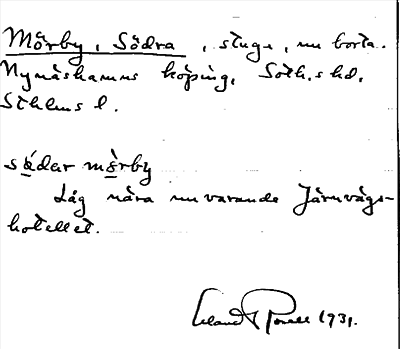 Mörby, Södra, stuga, nu borta.
Nynäshamns köping, Soth.s hd,
Sthlms l.
södar mörby
Låg nära nuvarande Järnvägs-
hotellet.
1931.